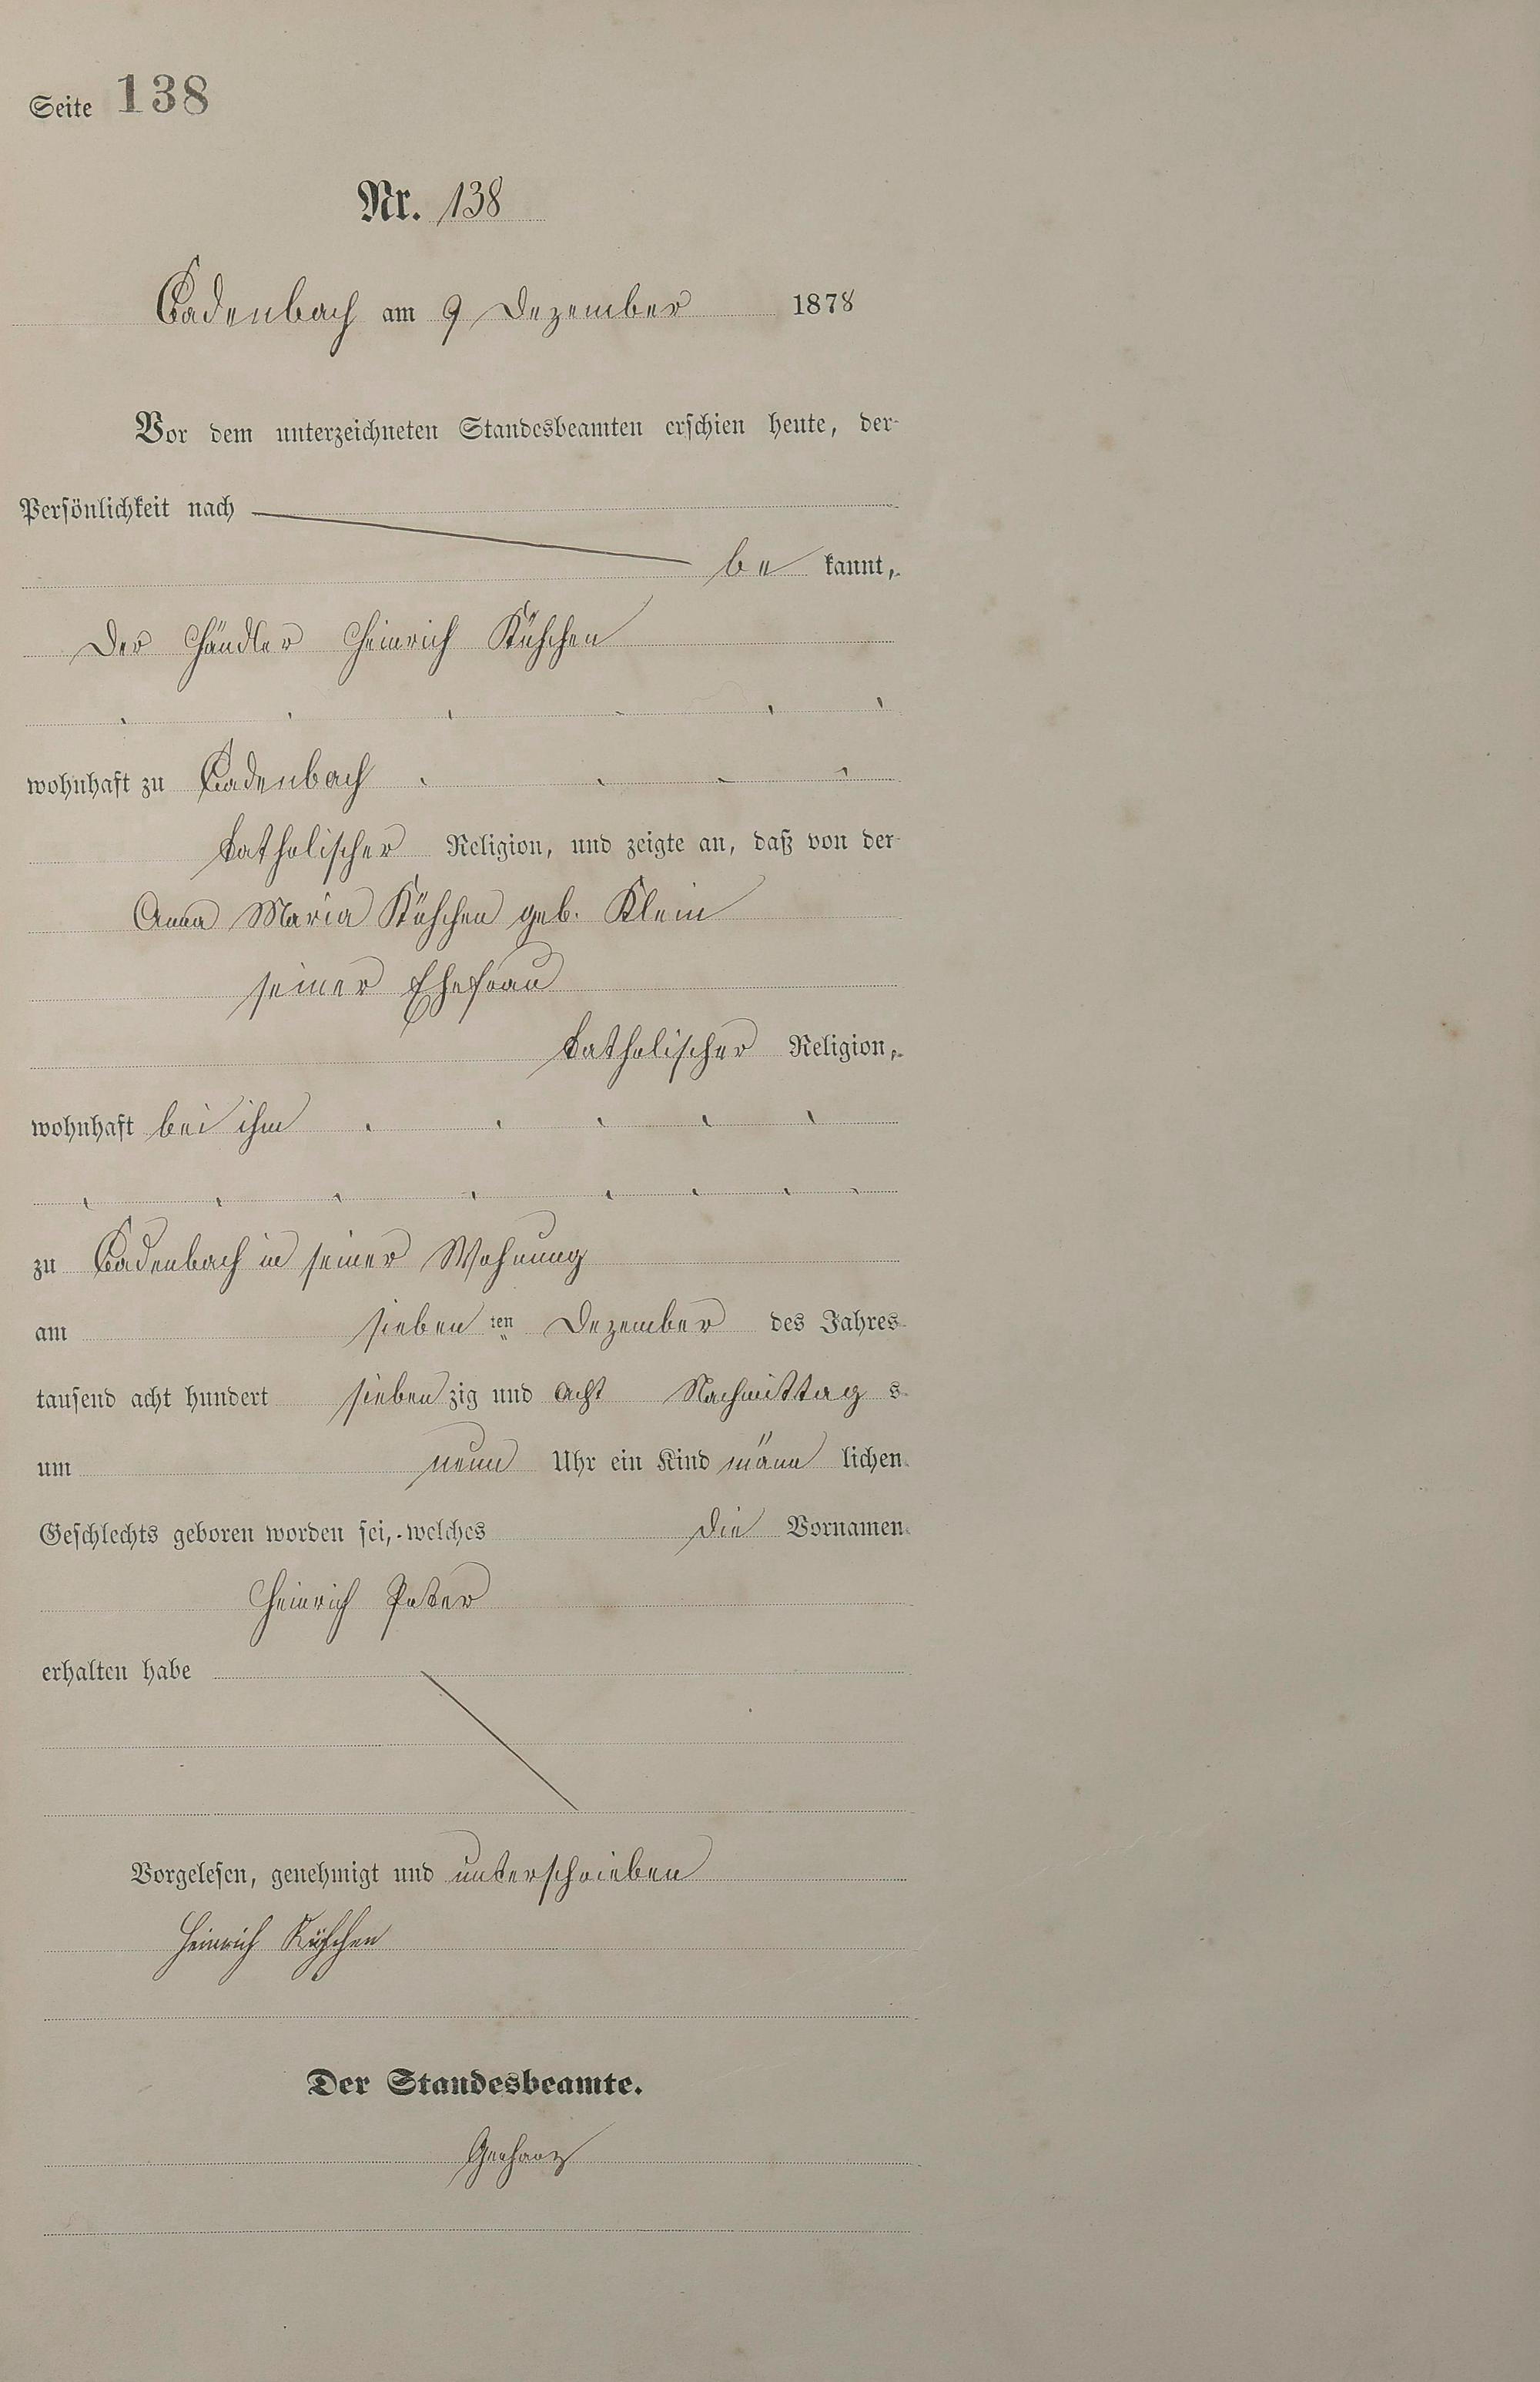 Seite 138
Nr. 138
Cadenbach am 9 Dezember 1878
Vor dem unterzeichneten Standesbeamten erschien heute, der
Persönlichkeit nach
be kannt,
Der Händler Heinrich Küschen
wohnhaft zu Cadenbach
katholischer Religion, und zeigte an, daß von der
Anna Maria Küschen geb. Klein
seiner Ehefrau
katholischer Religion,
wohnhaft bei ihm
zu Cadenbach in seiner Wohnung
am sieben ten Dezember des Jahres
tausend acht hundert sieben zig und acht Nachmittag s
um neun Uhr ein Kind männ lichen
Geschlechts geboren worden sei, welches die Vornamen
Heinrich Peter
erhalten habe
Vorgelesen, genehmigt und unterschrieben
Heinrich Küschen
Der Standesbeamte.